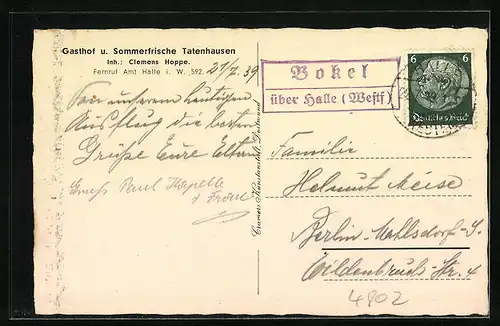 Gasthof u. Sommerfrische Tatenhausen
Inh.: Clemens Hoppe.
Fernruf Amt Halle i. W. 592.
27/7. 39
Von unserem heutigen
Ausflug die besten
Grüße Eure Eltern
Gruß Paul Kapelle
u Frau
Cramers Kunstanstalt, Dortmund
Bokel
über Halle (Westf)
6 6
Deutsches Reich
Familie
Helmut Meise
Berlin-Mahlsdorf-S.
Wildenbruch-Str. 4
4802